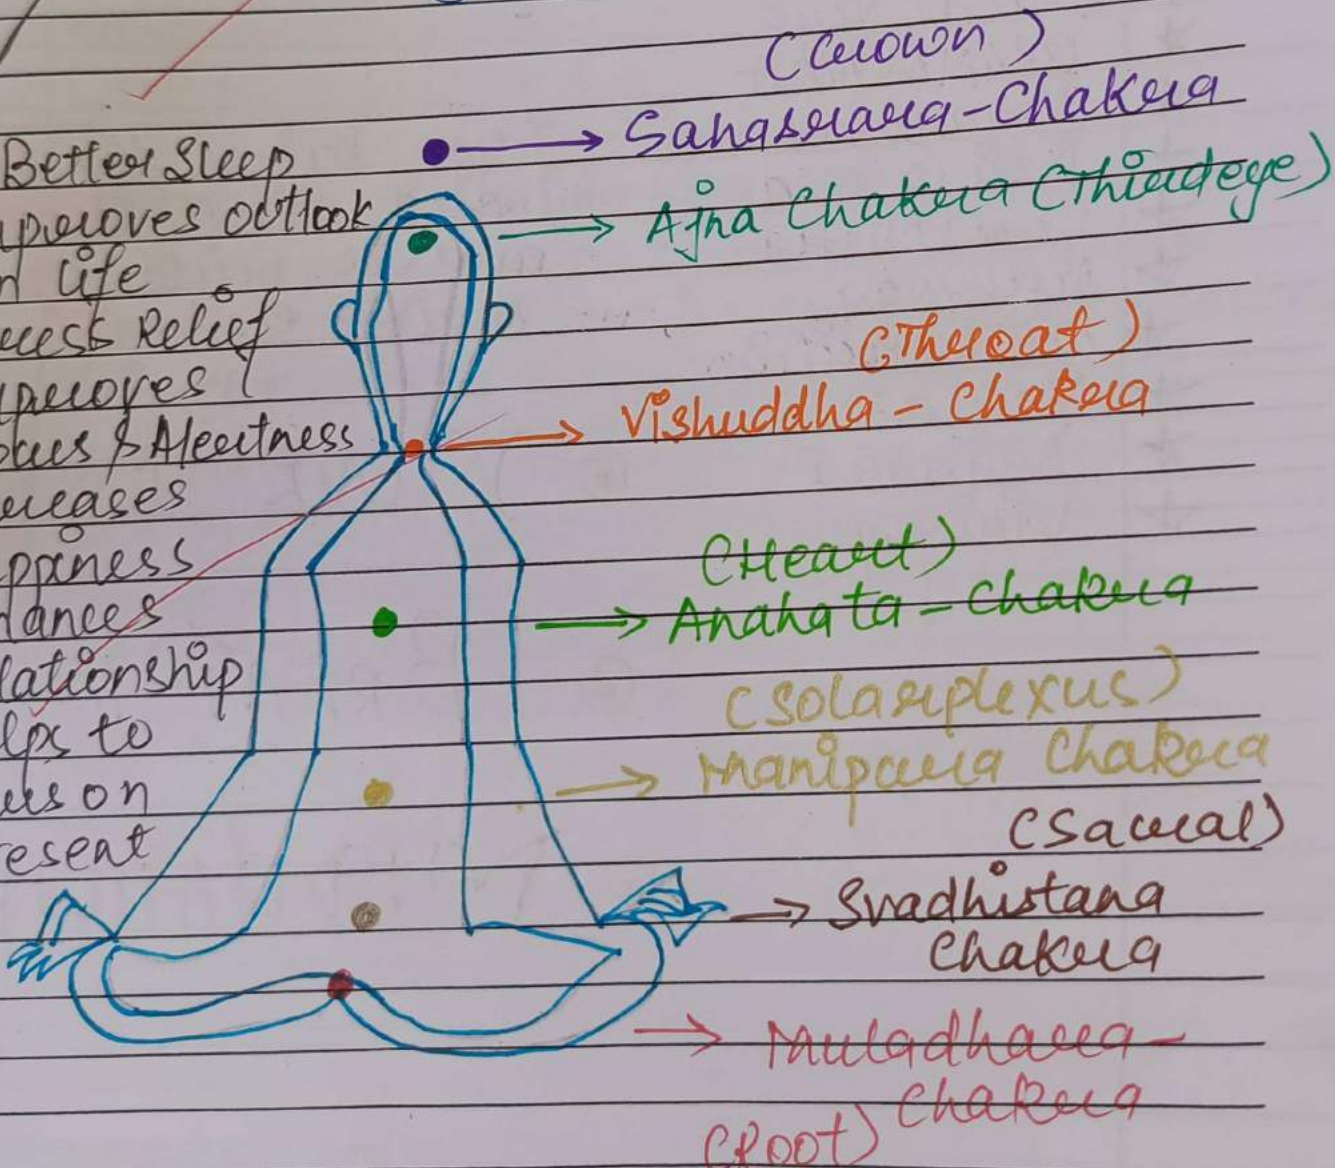 Better Sleep
uproves outlook
n life
ress Relief
uproves
ocus & Alertness
creases
ppiness
lances
lationship
lps to
us on
resent
(Crown)
Sahasrara-Chakra
Ajna Chakra (Thirdeye)
(Throat)
Vishuddha - Chakra
(Heart)
Anahata - Chakra
(Solarplexus)
Manipura Chakra
(Sacral)
Svadhistana
Chakra
Muladhara-
Chakra
(Root)